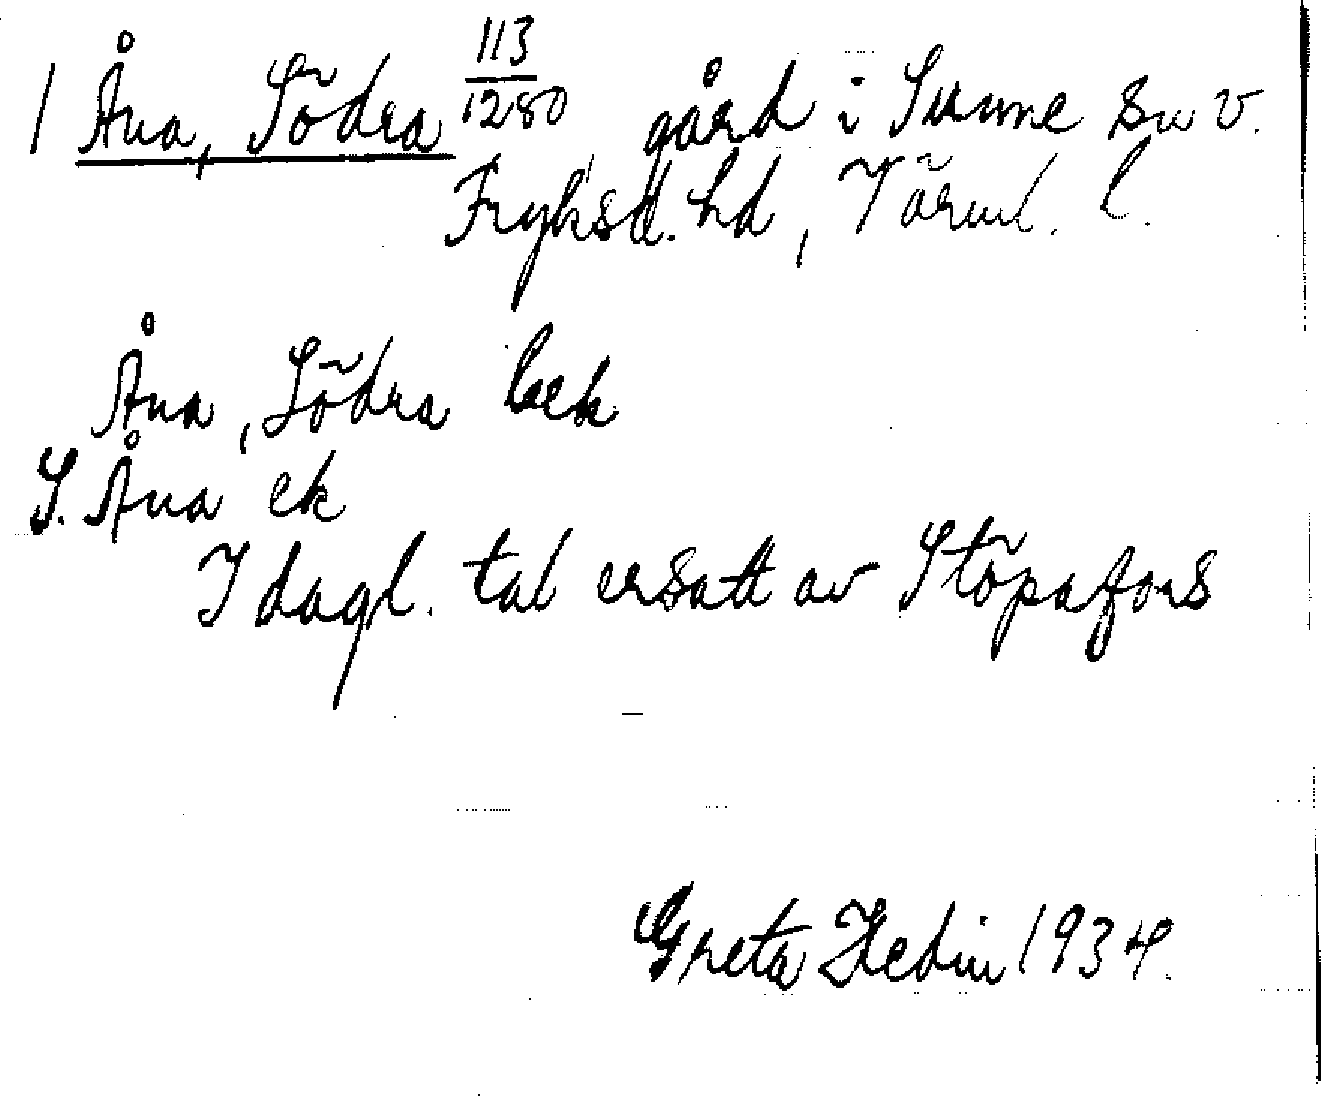 1 Åna, Södra 113/1280 gård i Sunne sn v.
Fryksd. hd, Värml. l.
Åna, Södra bek
S. Åna ek
I dagl. tal ersatt av Stöpafors
Greta Hedin 1934.